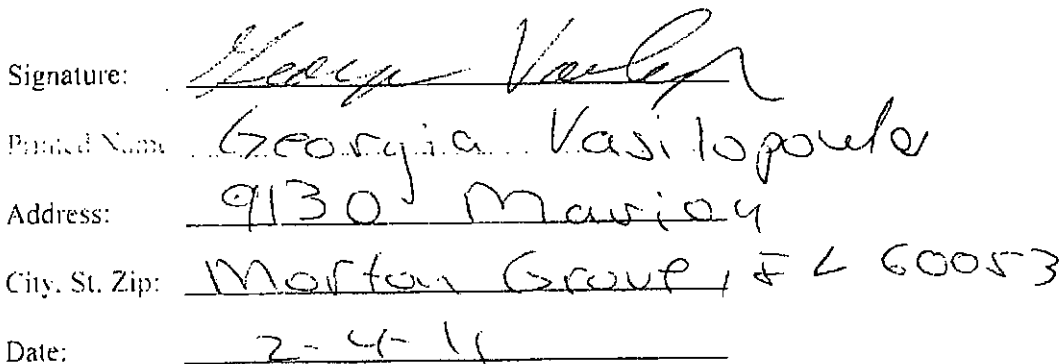 Signature:
Printed Name Georgia Vasilopoulos
Address: 9130 Marion
City. St. Zip: Morton Grove, IL 60053
Date: 2-4-11